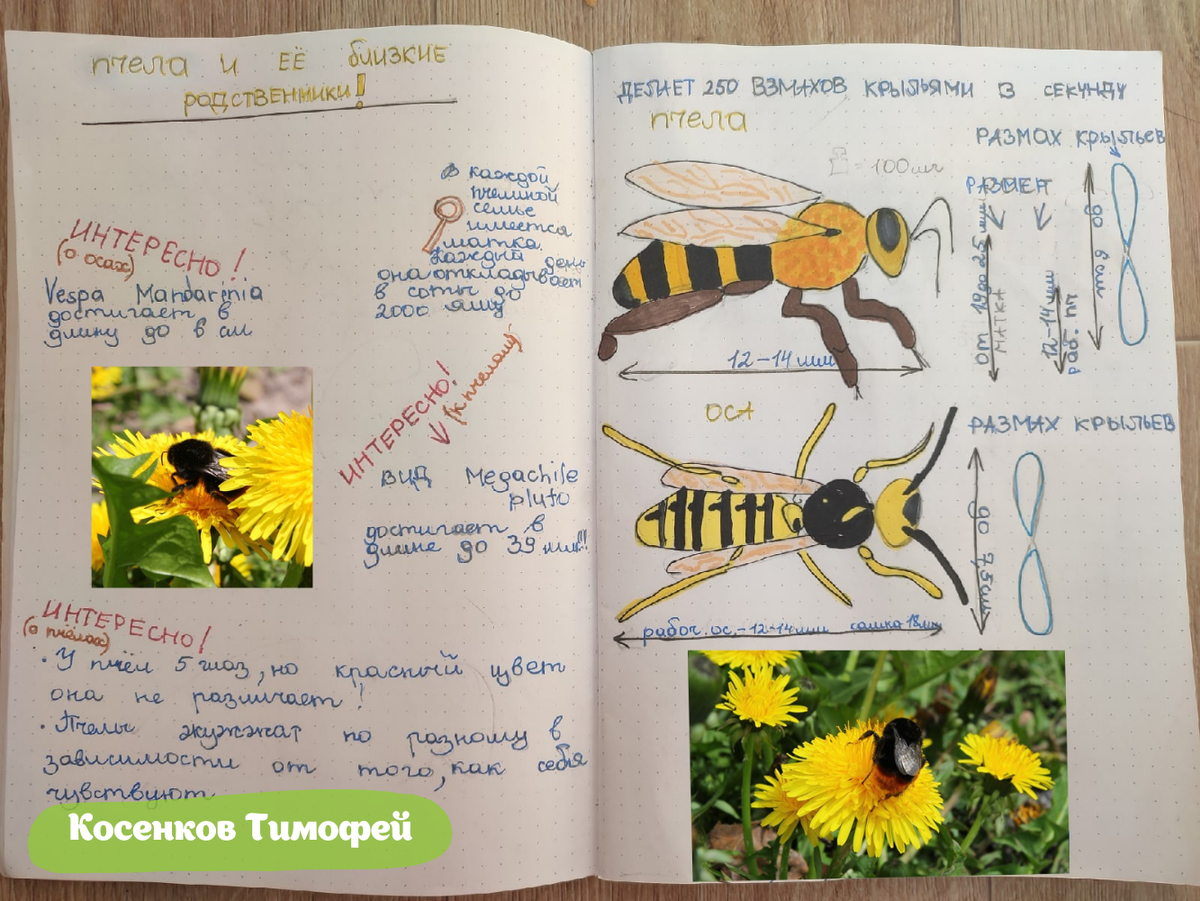 пчела и её близкие
родственники!
В каждой
пчелиной
семье
имеется
матка.
Каждый день
она откладывает
в соты до
2000 яиц
ИНТЕРЕСНО!
(о осах)
Vespa Mandarinia
достигает в
длину до 6 см
ИНТЕРЕСНО!
(к пчелам)
ВИД Megachile
pluto
достигает в
длине до 39 мм!!!
ИНТЕРЕСНО!
(о пчёлах)
• У пчёл 5 глаз, но красный цвет
она не различает!
• Пчелы жужжат по разному в
зависимости от того, как себя
чувствуют
Косенков Тимофей
ДЕЛАЕТ 250 ВЗМАХОВ КРЫЛЬЯМИ В СЕКУНДУ
пчела
= 100 мг
РАЗМАХ крыльев
от 19 до 25 мм
МАТКА
12-14 мм
раб. пч
до 6 см
12-14 мм
ОСА
РАЗМАХ КРЫЛЬЕВ
до 7,5 см
рабоч. ос. - 12-14 мм самка 18 мм